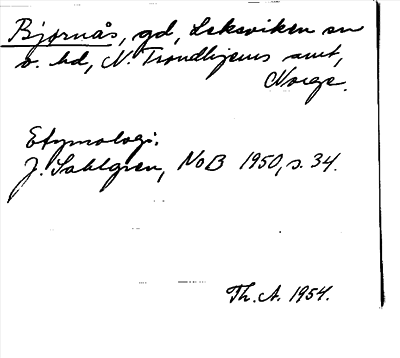 Bjørnås, gd, Leksviken sn
o. hd, N. Trondhjems amt,
Norge.
Etymologi.
J. Sahlgren, NoB 1950, s. 34.
Th. A. 1954.